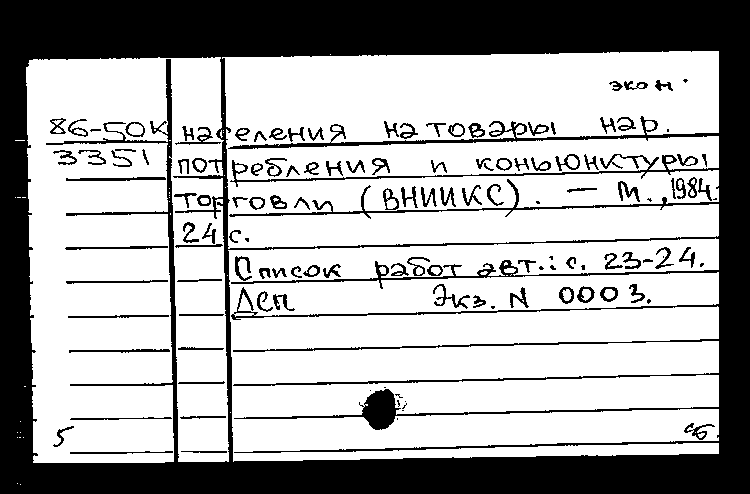 экон
86-50К населения на товары нар.
3351 потребления и коньюнктуры
торговли (ВНИИКС). — М., 1984.
24 с.
Список работ авт.: с. 23-24.
ДСП Экз. N 0003.
5